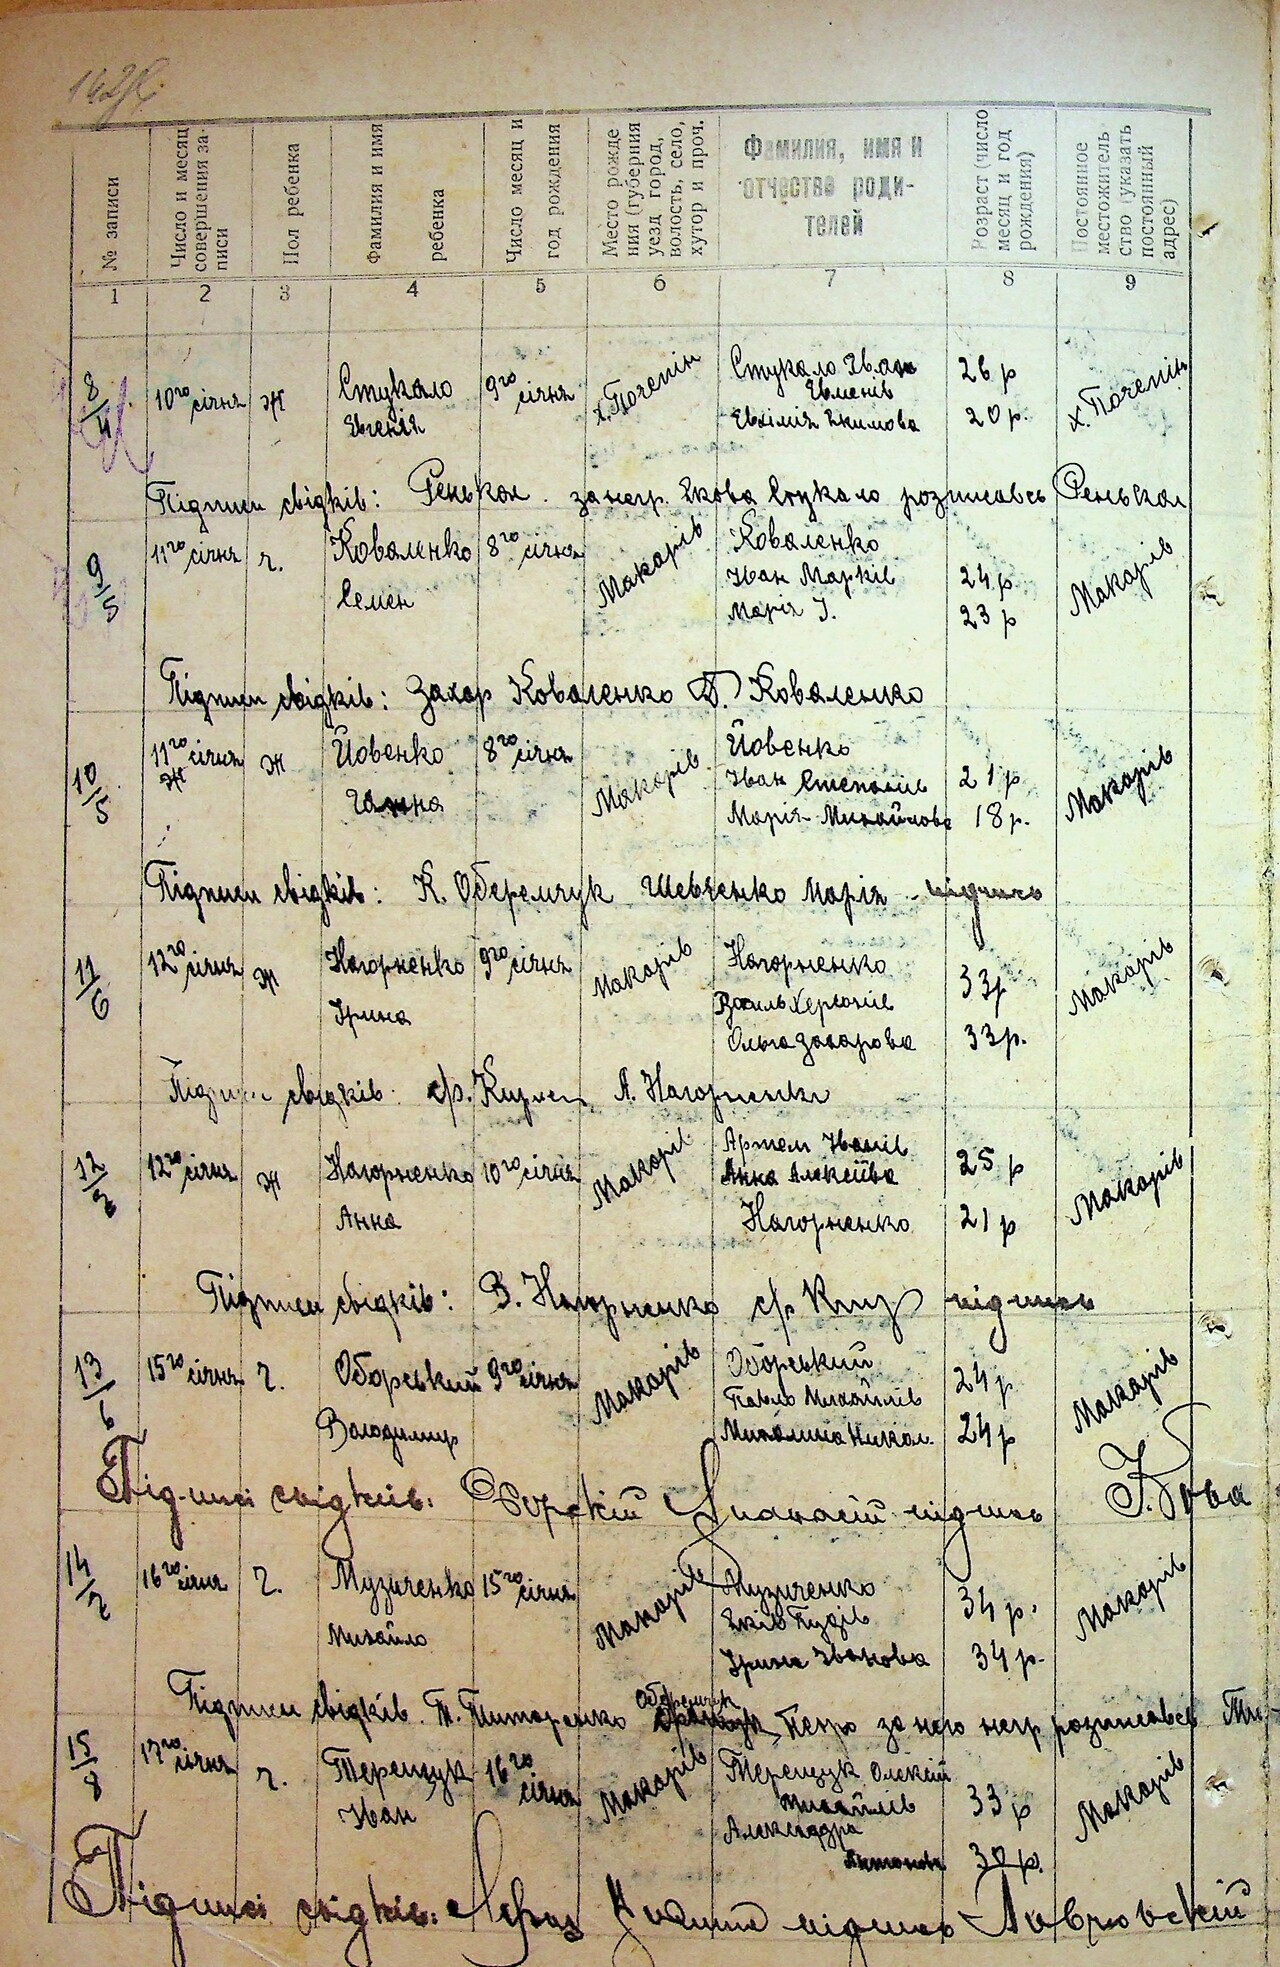 № записи
Число и месяц совершения записи
Пол ребенка
Фамилия и имя ребенка
Число месяц и год рождения
Место рождения (губерния уезд город, волость, село, хутор и проч.
Фамилия, имя и отчество родителей
Возраст (число месяц и год рождения)
Постоянное местожительство (указать постоянный адрес)
1 2 3 4 5 6 7 8 9
8/4 10го січня Ж Стукало 9го січня х. Поченін Стукало Іван 26 р х. Поченін
Евгенія Евменів
Евхимія Екимова 20 р.
Підписи свідків: за негр. Якова Стукало розписавсь
9/5 11го січня ч. Коваленко 8го січня Макарів Коваленко Макарів
Семен Іван Марків 24 р
Марія І. 23 р
Підписи свідків: Захар Коваленко Д. Коваленко
10/5 11го січня Ж Йовенко 8го січня Макарів Йовенко Макарів
Ж Ганна Іван Степанів 21 р
Марія Михайлова 18 р.
Підписи свідків: К. Оберемчук Шевченко Марія - підпись
11/6 12го січня Ж Нагорненко 9го січня Макарів Нагорненко 33 р Макарів
Ірина Василь
Ольга Захарова 33 р.
Підписи свідків: А. Нагорненко
12 12го січня Ж Нагорненко 10го січня Макарів Артем Іванів 25 р Макарів
Анна Алексіїва
Анна Нагорненко 21 р
Підписи свідків: В. Нагорненко підпись
13/6 15го січня ч. Оборський 9го січня Макарів Оборський 24 р Макарів
Павло Михайлів
Володимир Михалина Никол. 24 р
Підписі свідків: Оборскій Апанасій підпись
14/2 16го січня ч. Музиченко 15го січня Макарів Музиченко 34 р. Макарів
Михайло Яків
Ірина Іванова 34 р.
Підписи свідків. Т. Титаренко Оберемчук Петро за него негр розписавсь
15/8 17го січня ч. Терещук 16го січня Макарів Терещук Олексій Макарів
Іван Михайлів 33 р
Александра
Антонова 30 р.
Підписі свідків: підпись Лавровскій